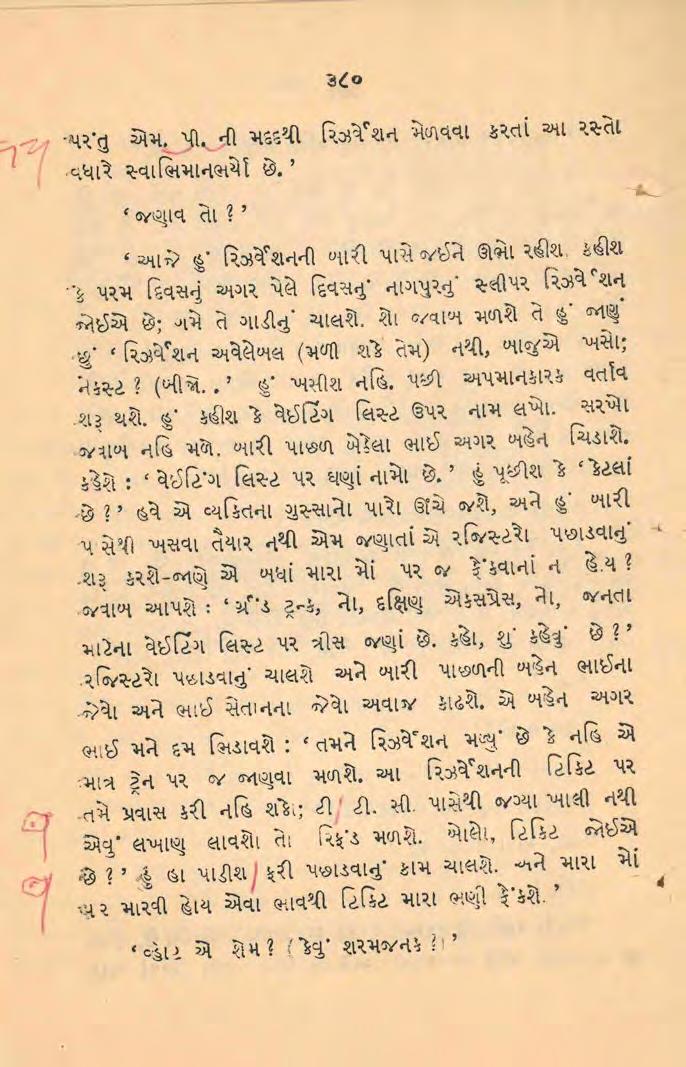 ૩૮૦
પરંતુ એમ. પી. ની મદદથી રિઝર્વેશન મેળવવા કરતાં આ રસ્તો
વધારે સ્વાભિમાનભર્યો છે.’
‘જણાવ તો ?’
‘આજે હું રિઝર્વેશનની બારી પાસે જઈને ઊભો રહીશ. કહીશ
કે પરમ દિવસનું અગર પેલે દિવસનું નાગપુરનું સ્લીપર રિઝર્વેશન
જોઈએ છે; ગમે તે ગાડીનું ચાલશે. શો જવાબ મળશે તે હું જાણું
છું ‘રિઝર્વેશન અવેલેબલ (મળી શકે તેમ) નથી, બાજુએ ખસો;
નેકસ્ટ ? (બીજો. .’ હું ખસીશ નહિ. પછી અપમાનકારક વર્તાવ
શરૂ થશે. હું કહીશ કે વેઈટિંગ લિસ્ટ ઉપર નામ લખો. સરખો
જવાબ નહિ મળે. બારી પાછળ બેઠેલા ભાઈ અગર બહેન ચિડાશે.
કહેશે : ‘વેઈટિંગ લિસ્ટ પર ઘણાં નામો છે.’ હું પૂછીશ કે ‘કેટલાં
છે ?’ હવે એ વ્યકિતના ગુસ્સાનો પારો ઊંચે જશે, અને હું બારી
પ સેથી ખસવા તૈયાર નથી એમ જણાતાં એ રજિસ્ટરો પછાડવાનું
શરૂ કરશે-જાણે એ બધાં મારા મોં પર જ ફેંકવાનાં ન હે.ય ?
જવાબ આપશે : ‘ગ્રૅંડ ટ્રન્ક, નો, દક્ષિણ એકસપ્રેસ, નો, જનતા
માટેના વેઈટિંગ લિસ્ટ પર ત્રીસ જણાં છે. કહો, શું કહેવું છે ?’
રજિસ્ટરો પછાડવાનું ચાલશે અને બારી પાછળની બહેન ભાઈના
જેવો અને ભાઈ સેતાનના જેવો અવાજ કાઢશે. એ બહેન અગર
ભાઈ મને દમ ભિડાવશે : ‘તમને રિઝર્વેશન મળ્યું છે કે નહિ એ
માત્ર ટ્રેન પર જ જાણવા મળશે. આ રિઝર્વેશનની ટિકિટ પર
તમે પ્રવાસ કરી નહિ શકો; ટી. ટી. સી. પાસેથી જગ્યા ખાલી નથી
એવું લખાણ લાવશો તો રિફંડ મળશે. બોલો, ટિકિટ જોઈએ
છે ?’ હું હા પાડીશ ફરી પછાડવાનું કામ ચાલશે. અને મારા મોં
પર મારવી હોય એવા ભાવથી ટિકિટ મારા ભણી ફેંકશે.’
‘વ્હોટ એ શેમ ? (કેવું શરમજનક ?)’